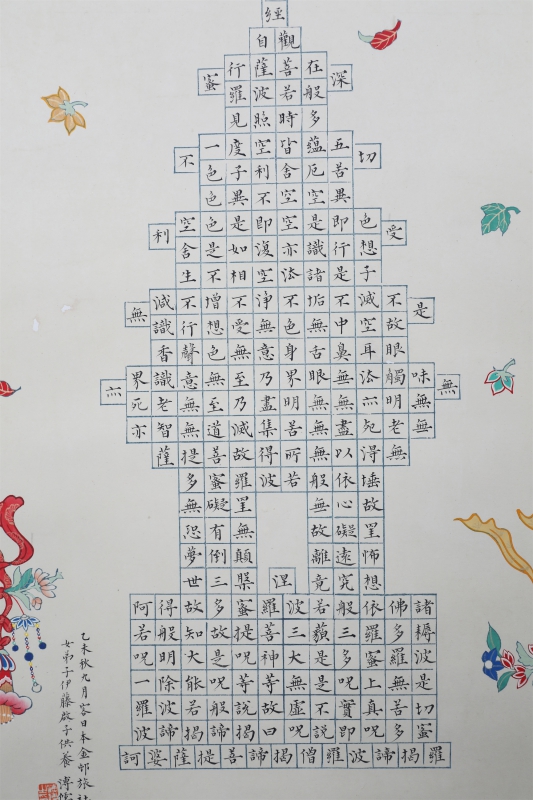 經
觀自
在菩薩行
深般若波羅蜜
多時照見
五蘊皆空度一
切苦厄舍利子色不
異空空不異色
色即是空空即是色
受想行識亦復如是舍利
子是諸法空相不生
不滅不垢不淨不增不減
是故空中無色無受想行識無
眼耳鼻舌身意無色聲香
味觸法無眼界乃至無意識界
無無明亦無無明盡乃至無老死亦
無老死盡無苦集滅道無智亦
無得以無所得故菩提薩
埵依般若波羅蜜多
故心無罣礙無
罣礙故無有恐
怖遠離顛倒夢
想究竟涅槃三世
諸佛依般若波羅蜜多故得阿
耨多羅三藐三菩提故知般若
波羅蜜多是大神呪是大明呪
是無上呪是無等等呪能除一
切苦真實不虛故說般若波羅
蜜多呪即說呪曰揭諦揭諦波
羅揭諦波羅僧揭諦菩提薩婆訶
乙未秋九月客日本金邨旅社
女弟子伊藤啟子供養 溥儒